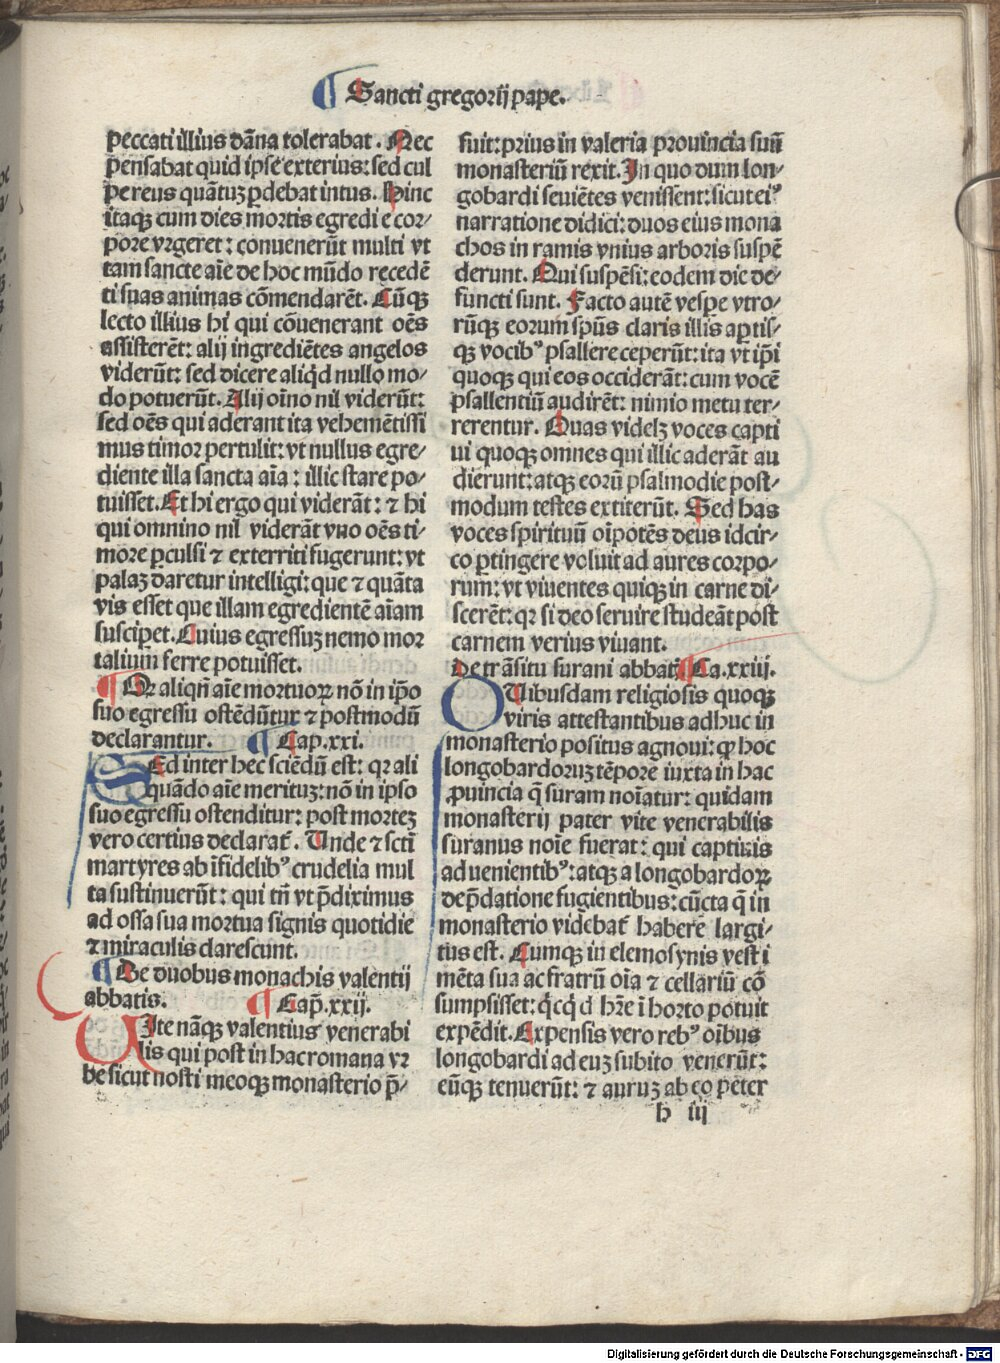 ¶ Sancti gregorij pape.
peccati illius dãna tolerabat. Nec
pensabat quid ipse exterius: sed cul
pe reus quãtuꝫ ꝑdebat intus. Hinc
itaqꝫ cum dies mortis egredi e cor⸗
pore vrgeret: conuenerũt multi vt
tam sancte aĩe de hoc mũdo recedẽ
ti suas animas cõmendarẽt. Cũqꝫ
lecto illius hi qui cõuenerant oẽs
assisterẽt: alij ingrediẽtes angelos
viderũt: sed dicere aliqd nullo mo⸗
do potuerũt. Alij oĩno nil viderũt:
sed oẽs qui aderant ita vehemẽtissi
mus timoꝛ pertulit: vt nullus egre⸗
diente illa sancta aĩa: illic stare po⸗
tuisset. Et hi ergo qui viderãt: ⁊ hi
qui omnino nil viderãt vno oẽs ti⸗
more ꝑculsi ⁊ exterriti fugerunt: vt
palaꝫ daretur intelligi: que ⁊ quãta
vis esset que illam egredientẽ aĩam
susciperet. Cuius egressuꝫ nemo mor
talium ferre potuisset.
¶ Qꝛ aliqñ aĩe mortuoꝝ nõ in ip̃o
suo egressu ostẽdũtur ⁊ postmodũ
declarantur. ¶ Cap.xxi.
SEd inter hec sciẽdũ est: qꝛ ali
quãdo aĩe merituꝫ: nõ in ipso
suo egressu ostenditur: post morteꝫ
vero certius declarat̃. Unde ⁊ sctĩ
martyres ab ĩfidelibꝰ crudelia mul
ta sustinuerũt: qui tñ vt p̃diximus
ad ossa sua mortua signis quotidie
⁊ miraculis clarescunt.
¶ De duobus monachis valentij
abbatis. ¶ Cap̃.xxij.
UIte nãqꝫ valentius venerabi
lis qui post in hac romana vr
be sicut nosti meoqꝫ monasterio p̃⸗
fuit: prius in valeria prouincia suũ
monasteriũ rexit. In quo dum lon⸗
gobardi seuiẽtes venissent: sicut eiꝰ
narratione didici: duos eius mona
chos in ramis vnius arboris suspẽ
derunt. Qui suspẽsi: eodem die de⸗
functi sunt. Facto autẽ vesp̃e vtro⸗
rũqꝫ eorum sp̃us claris illis aꝑtis⸗
qꝫ vocibꝰ psallere ceperũt: ita vt ip̃i
quoqꝫ qui eos occiderãt: cum vocẽ
psallentiũ audirẽt: nimio metu ter⸗
rerentur. Quas videlꝫ voces capti
ui quoqꝫ omnes qui illic aderãt au
dierunt: atqꝫ eorũ psalmodie post⸗
modum testes extiterũt. Sed has
voces spirituũ oĩpotẽs deus idcir⸗
co ꝑtingere voluit ad aures corpo⸗
rum: vt viuentes quiqꝫ in carne di⸗
scerẽt: qꝛ si deo seruire studeãt post
carnem verius viuant.
De trãsitu surani abbat̃. ¶ Ca.xxiij.
QUibusdam religiosis quoqꝫ
viris attestantibus adhuc in
monasterio positus agnoui: ꝙ hoc
longobardoruꝫ tẽpore iuxta in hac
ꝓuincia q̃ suram noĩatur: quidam
monasterij pater vite venerabilis
suranus noĩe fuerat: qui captiuis
aduenientibꝰ: atqꝫ a longobardoꝝ
dep̃datione fugientibus: cũcta q̃ in
monasterio videbat̃ habere largi⸗
tus est. Cumqꝫ in elemosynis vesti
mẽta sua ac fratrũ oĩa ⁊ cellariũ cõ
sumpsisset: q̇cq̇d hr̃e ĩ horto potuit
expẽdit. Expensis vero rebꝰ oĩbus
longobardi ad euꝫ subito venerũt:
eũqꝫ tenuerũt: ⁊ auruꝫ ab eo peter
h iij
Digitalisierung gefördert durch die Deutsche Forschungsgemeinschaft - DFG